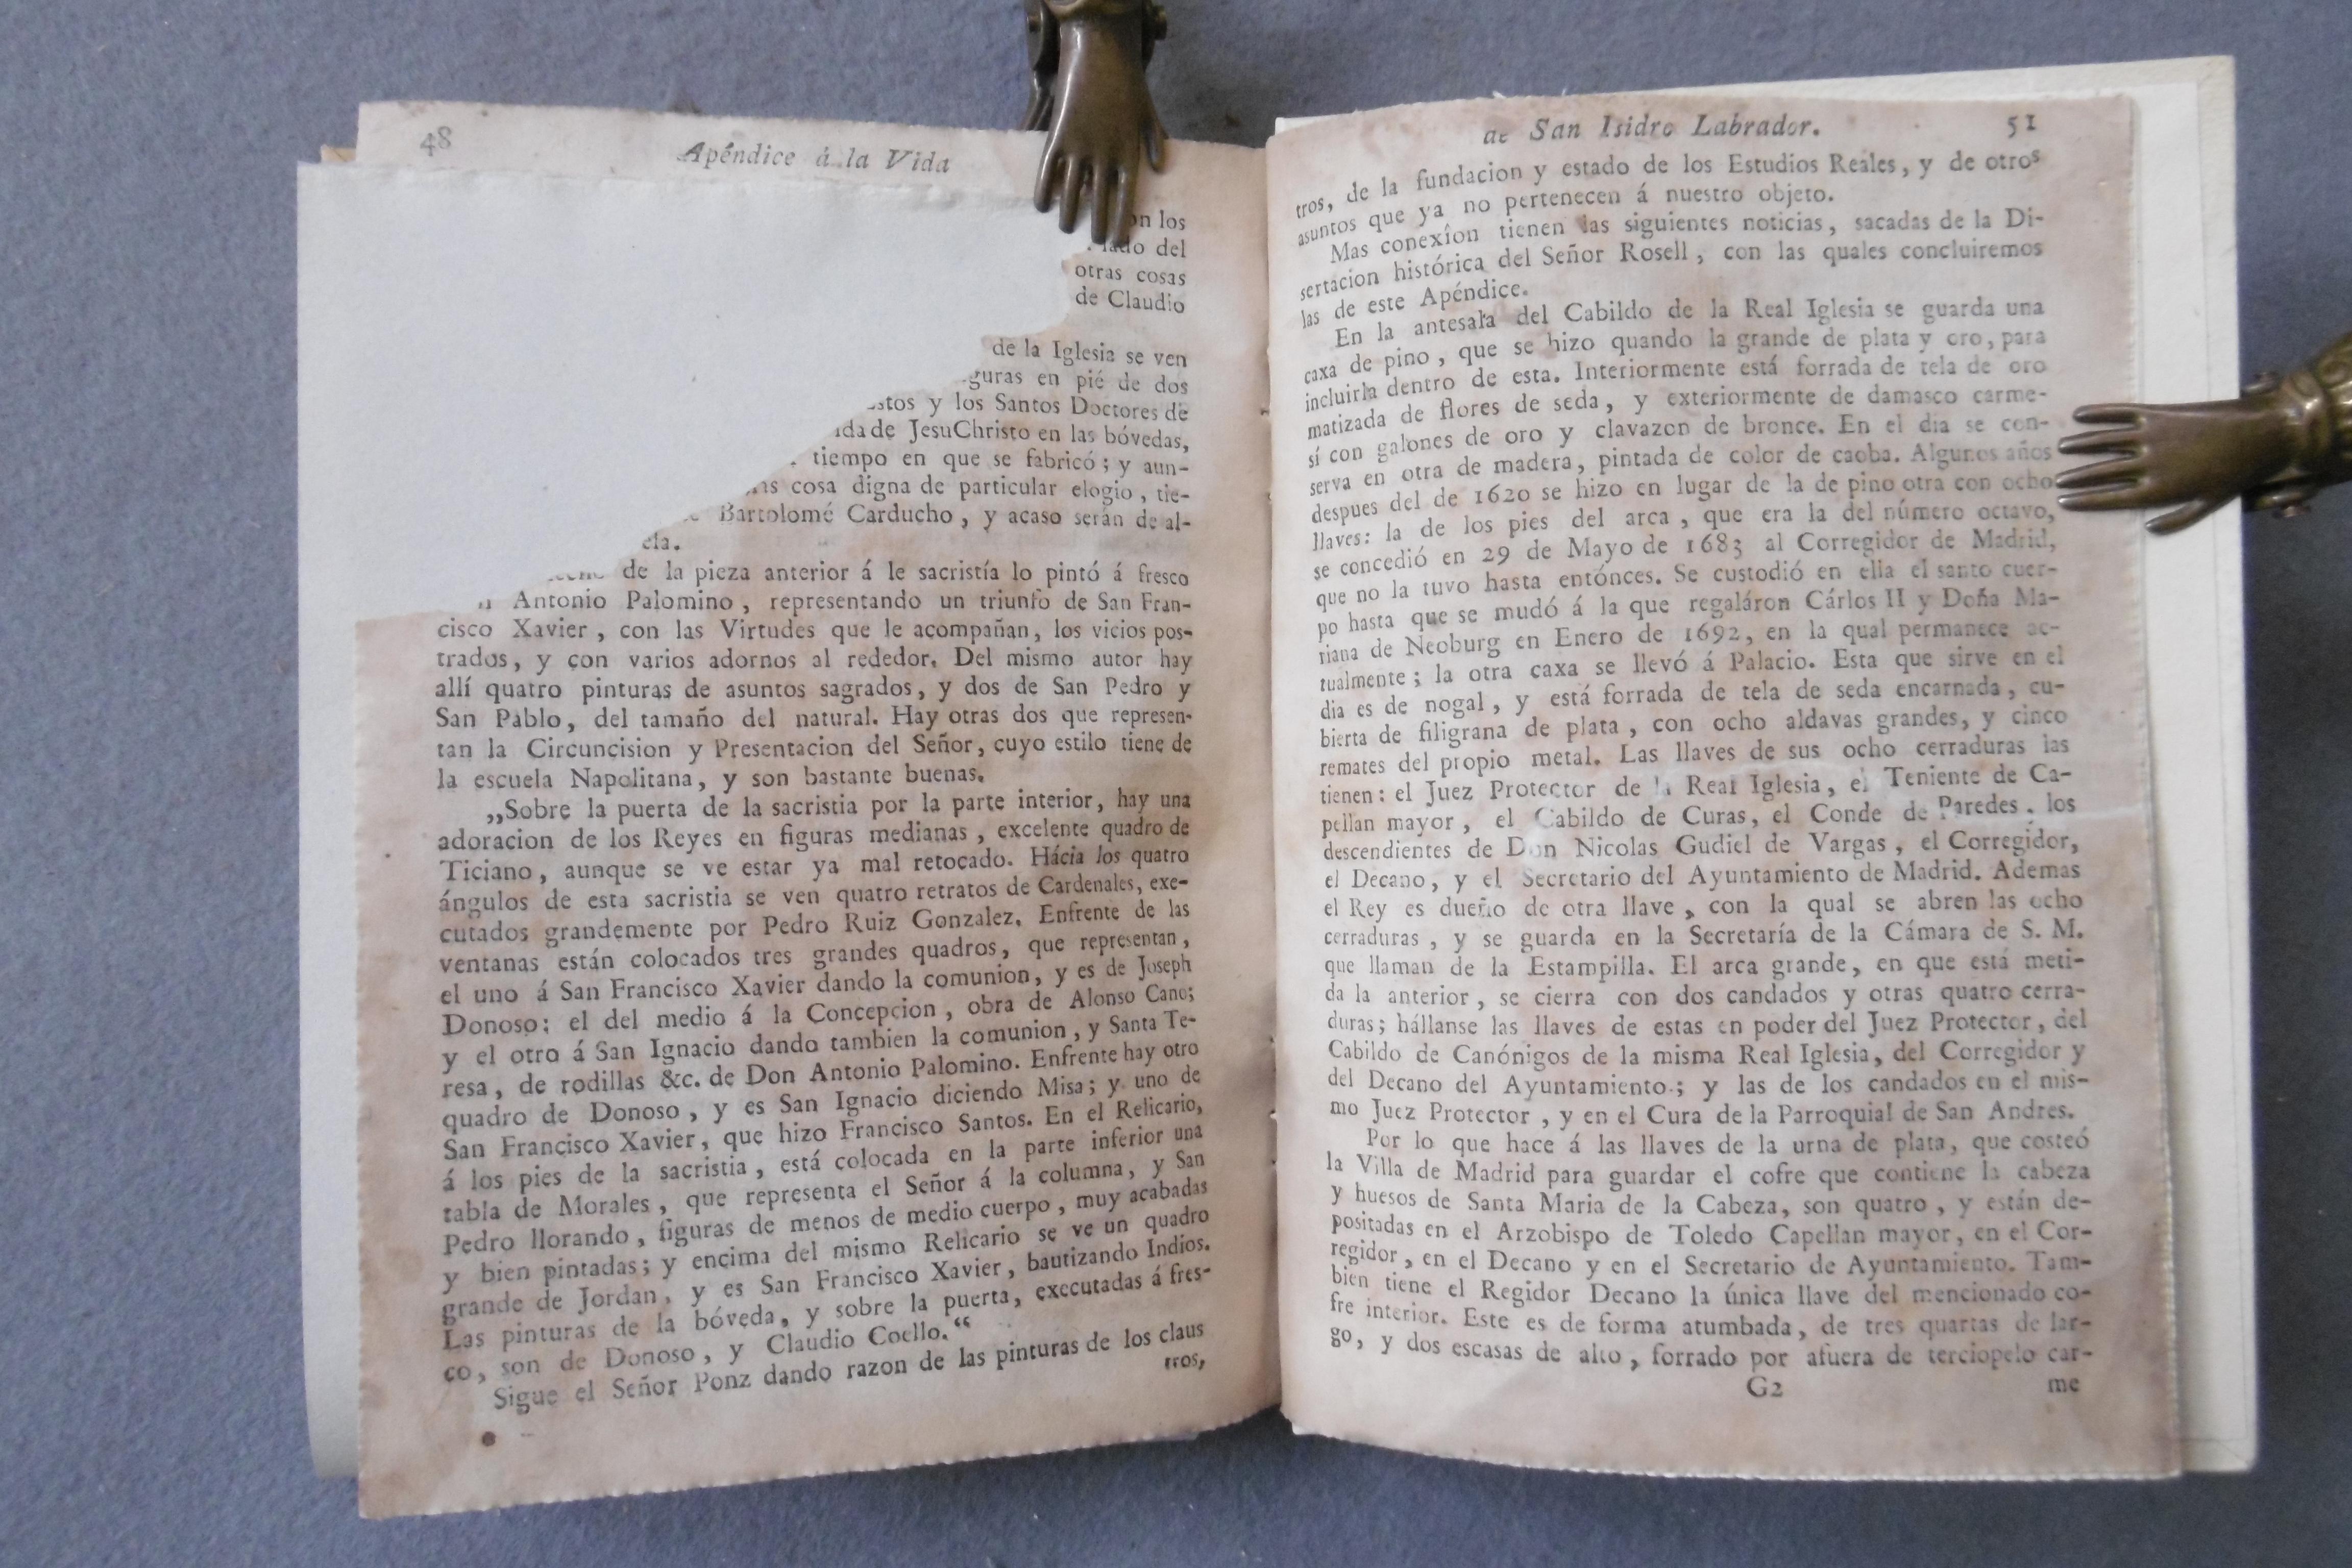 48
Apéndice á la Vida
los
lado del
otras cosas
de Claudio
de la Iglesia se ven
en pié de dos
y los Santos Doctores de
de JesuChristo en las bóvedas,
tiempo en que se fabricó; y aun-
cosa digna de particular elogio, tie-
Bartolomé Carducho, y acaso serán de al-
de la pieza anterior á le sacristía lo pintó á fresco
Antonio Palomino, representando un triunfo de San Fran-
cisco Xavier, con las Virtudes que le acompañan, los vicios pos-
trados, y con varios adornos al rededor. Del mismo autor hay
allí quatro pinturas de asuntos sagrados, y dos de San Pedro y
San Pablo, del tamaño del natural. Hay otras dos que represen-
tan la Circuncision y Presentacion del Señor, cuyo estilo tiene de
la escuela Napolitana, y son bastante buenas.
„Sobre la puerta de la sacristia por la parte interior, hay una
adoracion de los Reyes en figuras medianas, excelente quadro de
Ticiano, aunque se ve estar ya mal retocado. Hácia los quatro
ángulos de esta sacristia se ven quatro retratos de Cardenales, exe-
cutados grandemente por Pedro Ruiz Gonzalez. Enfrente de las
ventanas están colocados tres grandes quadros, que representan,
el uno á San Francisco Xavier dando la comunion, y es de Joseph
Donoso; el del medio á la Concepcion, obra de Alonso Cano;
y el otro á San Ignacio dando tambien la comunion, y Santa Te-
resa, de rodillas &c. de Don Antonio Palomino. Enfrente hay otro
quadro de Donoso, y es San Ignacio diciendo Misa; y uno de
San Francisco Xavier, que hizo Francisco Santos. En el Relicario,
á los pies de la sacristia, está colocada en la parte inferior una
tabla de Morales, que representa el Señor á la columna, y San
Pedro llorando, figuras de menos de medio cuerpo, muy acabadas
y bien pintadas; y encima del mismo Relicario se ve un quadro
grande de Jordan, y es San Francisco Xavier, bautizando Indios.
Las pinturas de la bóveda, y sobre la puerta, executadas á fres-
co, son de Donoso, y Claudio Coello.“
Sigue el Señor Ponz dando razon de las pinturas de los claus
tros,
de San Isidro Labrador.
51
tros, de la fundacion y estado de los Estudios Reales, y de otros
asuntos que ya no pertenecen á nuestro objeto.
Mas conexîon tienen las siguientes noticias, sacadas de la Di-
sertacion histórica del Señor Rosell, con las quales concluiremos
las de este Apéndice.
En la antesala del Cabildo de la Real Iglesia se guarda una
caxa de pino, que se hizo quando la grande de plata y oro, para
incluirla dentro de esta. Interiormente está forrada de tela de oro
matizada de flores de seda, y exteriormente de damasco carme-
sí con galones de oro y clavazon de bronce. En el dia se con-
serva en otra de madera, pintada de color de caoba. Algunos años
despues del de 1620 se hizo en lugar de la de pino otra con ocho
llaves: la de los pies del arca, que era la del número octavo,
se concedió en 29 de Mayo de 1683 al Corregidor de Madrid,
que no la tuvo hasta entónces. Se custodió en ella el santo cuer-
po hasta que se mudó á la que regaláron Cárlos II y Doña Ma-
riana de Neoburg en Enero de 1692, en la qual permanece ac-
tualmente; la otra caxa se llevó á Palacio. Esta que sirve en el
dia es de nogal, y está forrada de tela de seda encarnada, cu-
bierta de filigrana de plata, con ocho aldavas grandes, y cinco
remates del propio metal. Las llaves de sus ocho cerraduras las
tienen: el Juez Protector de la Real Iglesia, el Teniente de Ca-
pellan mayor, el Cabildo de Curas, el Conde de Paredes, los
descendientes de Don Nicolas Gudiel de Vargas, el Corregidor,
el Decano, y el Secretario del Ayuntamiento de Madrid. Ademas
el Rey es dueño de otra llave, con la qual se abren las ocho
cerraduras, y se guarda en la Secretaría de la Cámara de S. M.
que llaman de la Estampilla. El arca grande, en que está meti-
da la anterior, se cierra con dos candados y otras quatro cerra-
duras; hállanse las llaves de estas en poder del Juez Protector, del
Cabildo de Canónigos de la misma Real Iglesia, del Corregidor y
del Decano del Ayuntamiento; y las de los candados en el mis-
mo Juez Protector, y en el Cura de la Parroquial de San Andres.
Por lo que hace á las llaves de la urna de plata, que costeó
la Villa de Madrid para guardar el cofre que contiene la cabeza
y huesos de Santa Maria de la Cabeza, son quatro, y están de-
positadas en el Arzobispo de Toledo Capellan mayor, en el Cor-
regidor, en el Decano y en el Secretario de Ayuntamiento. Tam-
bien tiene el Regidor Decano la única llave del mencionado co-
fre interior. Este es de forma atumbada, de tres quartas de lar-
go, y dos escasas de alto, forrado por afuera de terciopelo car-
G2
me